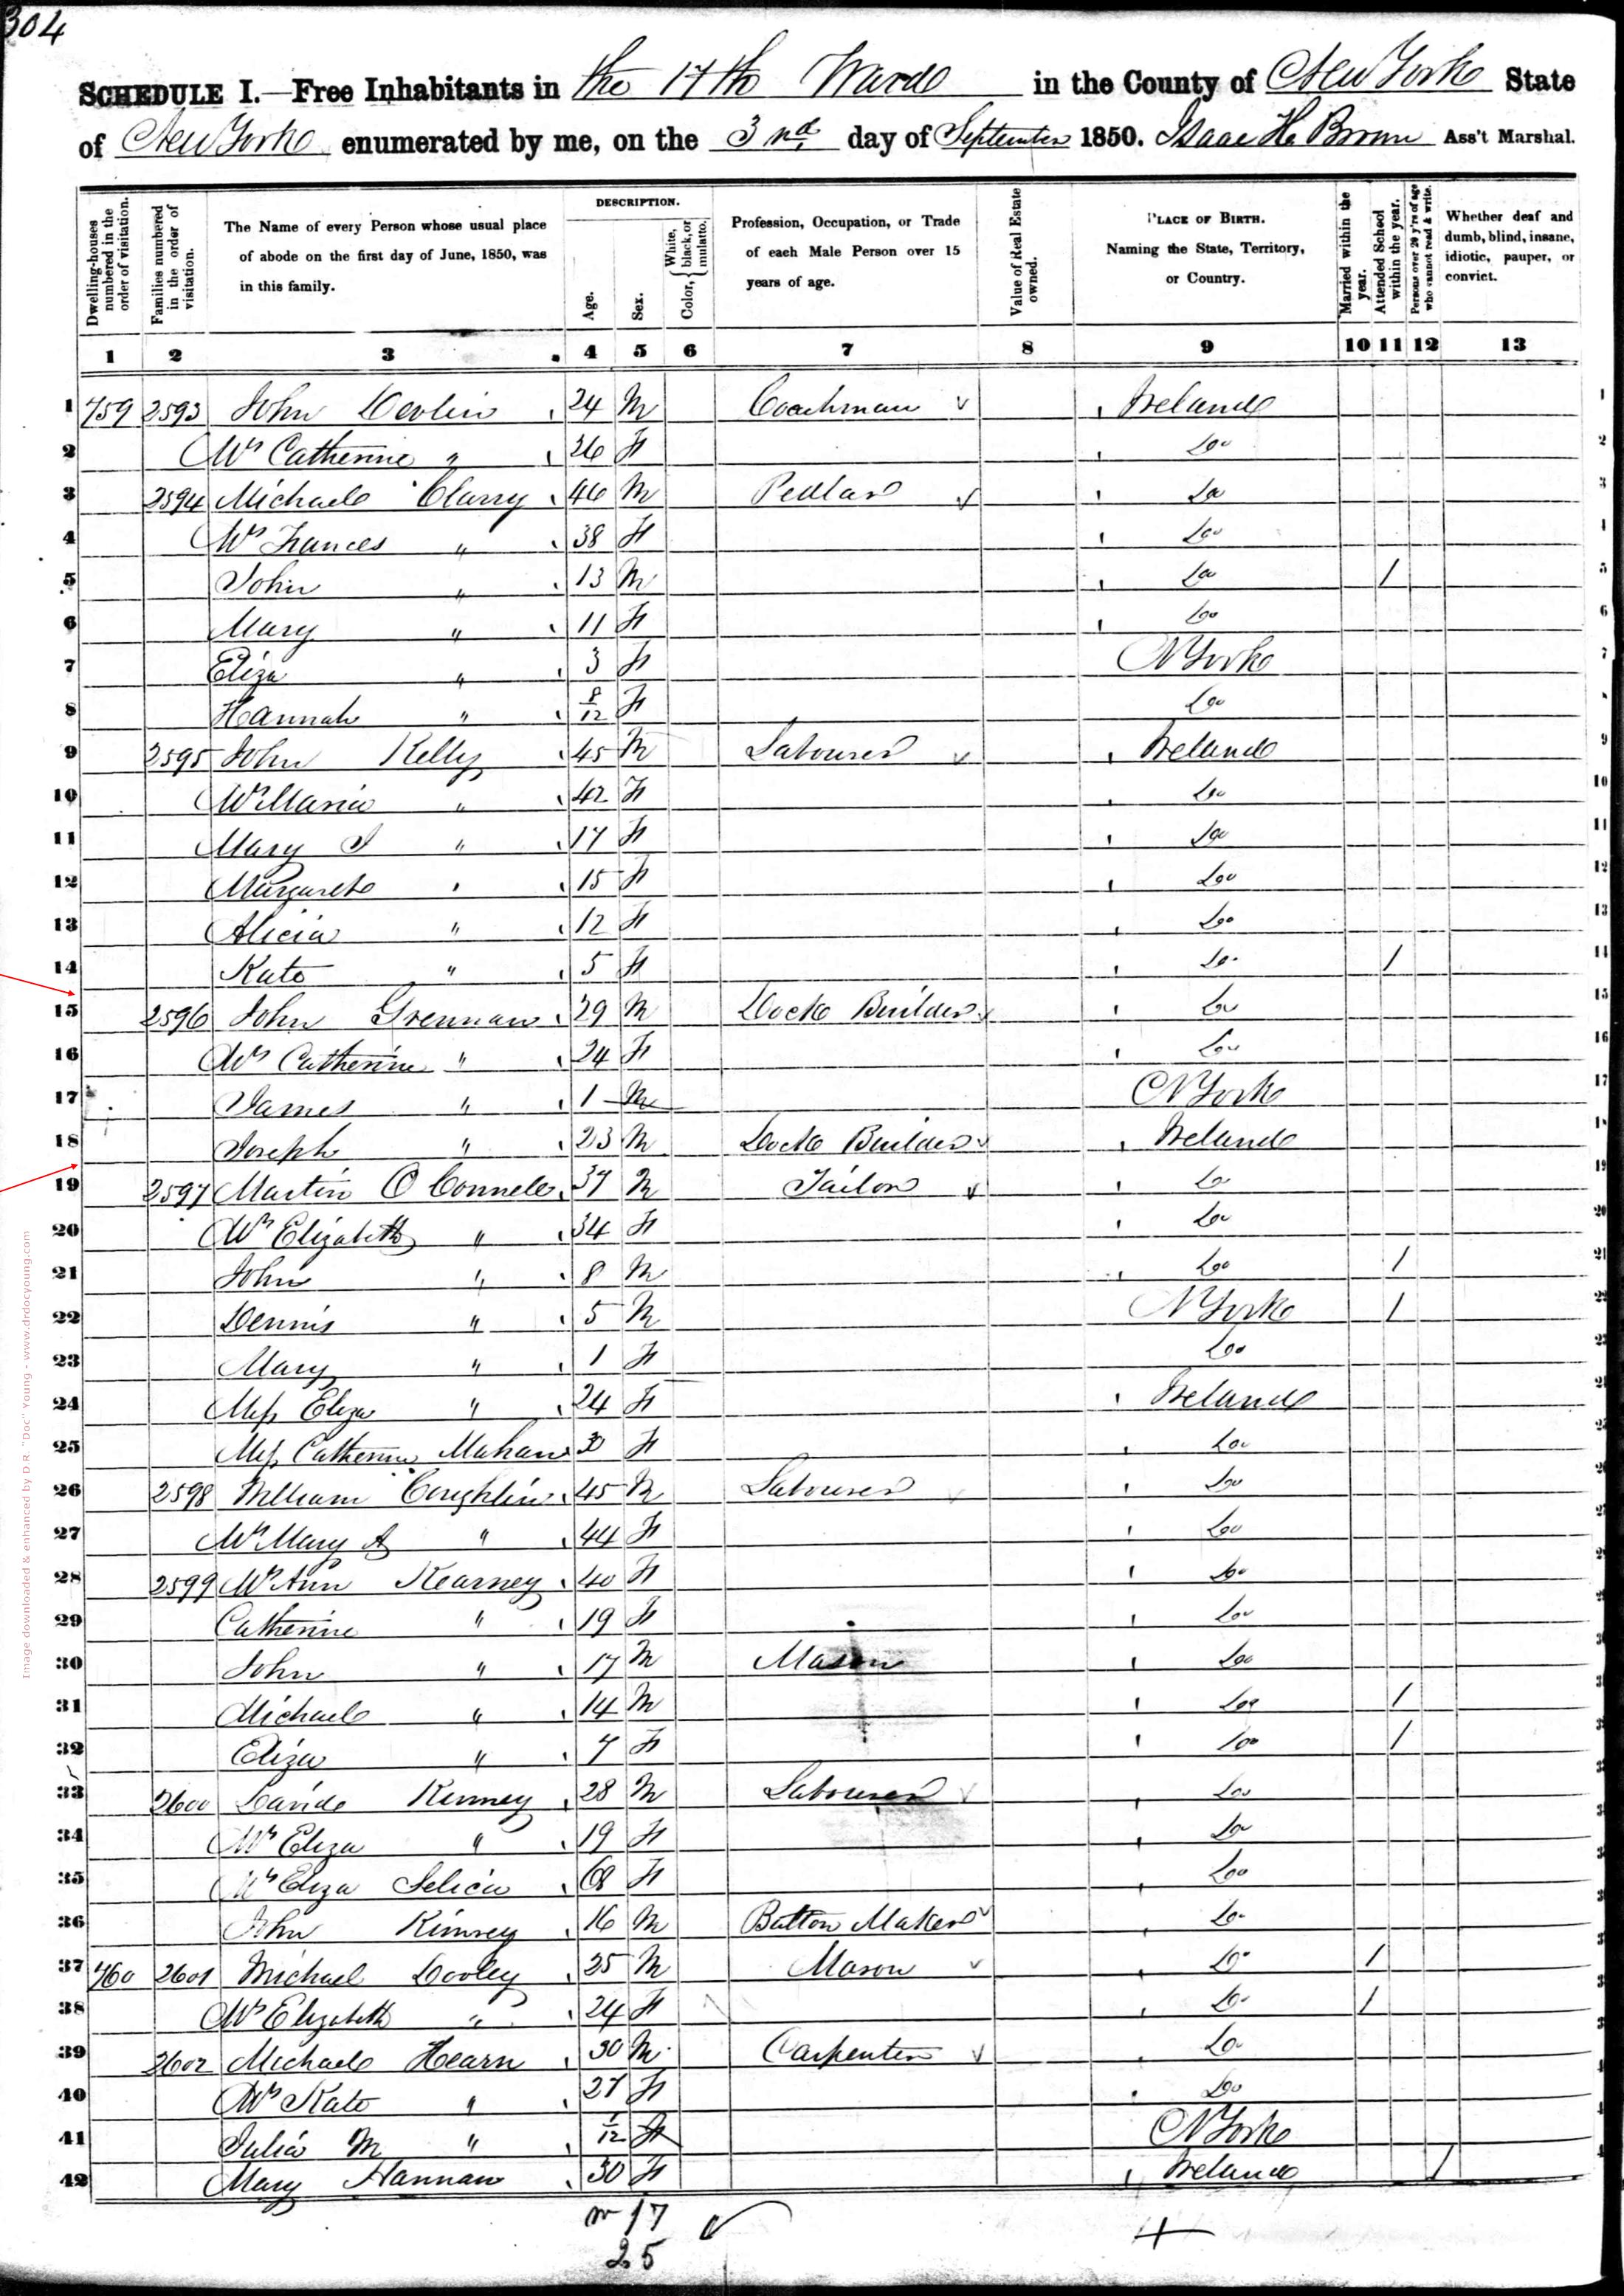 304
SCHEDULE I.—Free Inhabitants in the 17th Ward in the County of New York State
of New York enumerated by me, on the 3nd day of September 1850. Isaac H. Brown Ass't Marshal.
Dwelling-houses numbered in the order of visitation.
Families numbered in the order of visitation.
The Name of every Person whose usual place of abode on the first day of June, 1850, was in this family.
DESCRIPTION.
Age.
Sex.
Color, { White, black, or mulatto.
Profession, Occupation, or Trade of each Male Person over 15 years of age.
Value of Real Estate owned.
PLACE OF BIRTH. Naming the State, Territory, or Country.
Married within the year.
Attended School within the year.
Persons over 20 y'rs of age who cannot read & write.
Whether deaf and dumb, blind, insane, idiotic, pauper, or convict.
1 2 3 4 5 6 7 8 9 10 11 12 13
1 759 2593 John Devlin 24 M Coachman Ireland 1
2 Mrs Catherine " 26 F Do 2
3 2594 Michael Clarry 46 M Pedlar Do 3
4 Mrs Frances " 38 F Do 4
5 John " 13 M Do / 5
6 Mary " 11 F Do 6
7 Eliza " 3 F N York 7
8 Hannah " 8/12 F Do
9 2595 John Kelly 45 M Labourer Ireland 9
10 Mrs Maria " 42 F Do 10
11 Mary J " 17 F Do 11
12 Margaret " 15 F Do 12
13 Alicia " 12 F Do 13
14 Kate " 5 F Do / 14
15 2596 John Grennan 29 M Dock Builder Do 15
16 Mrs Catherine " 24 F Do 16
17 James " 1 M N York 17
18 Joseph " 23 M Dock Builder Ireland
19 2597 Martin O Connell 37 M Tailor Do 19
20 Mrs Elizabeth " 34 F Do 20
21 John " 8 M Do / 21
22 Dennis " 5 M N York / 22
23 Mary " 1 F Do
24 Miss Eliza " 24 F Ireland
25 Miss Catherine Mahan 30 F Do
26 2598 William Coughlin 45 M Labourer Do
27 Mrs Mary A " 44 F Do
28 2599 Mrs Ann Kearney 40 F Do
29 Catherine " 19 F Do
30 John " 17 M Mason Do
31 Michael " 14 M Do /
32 Eliza " 7 F Do /
33 2600 David Kinney 28 M Labourer Do
34 Mrs Eliza " 19 F Do
35 Mrs Eliza 68 F Do
36 John Kinney 16 M Button Maker Do
37 760 2601 Michael Dooley 25 M Mason Do /
38 Mrs Elizabeth " 24 F Do /
39 2602 Michael Hearn 30 M Carpenter Do
40 Mrs Kate " 27 F Do
41 Julia M " 1/12 F N York
42 Mary Hannan 30 F Ireland /
m 17
25
Image downloaded & enhanced by D.R. "Doc" Young - www.drdocyoung.com